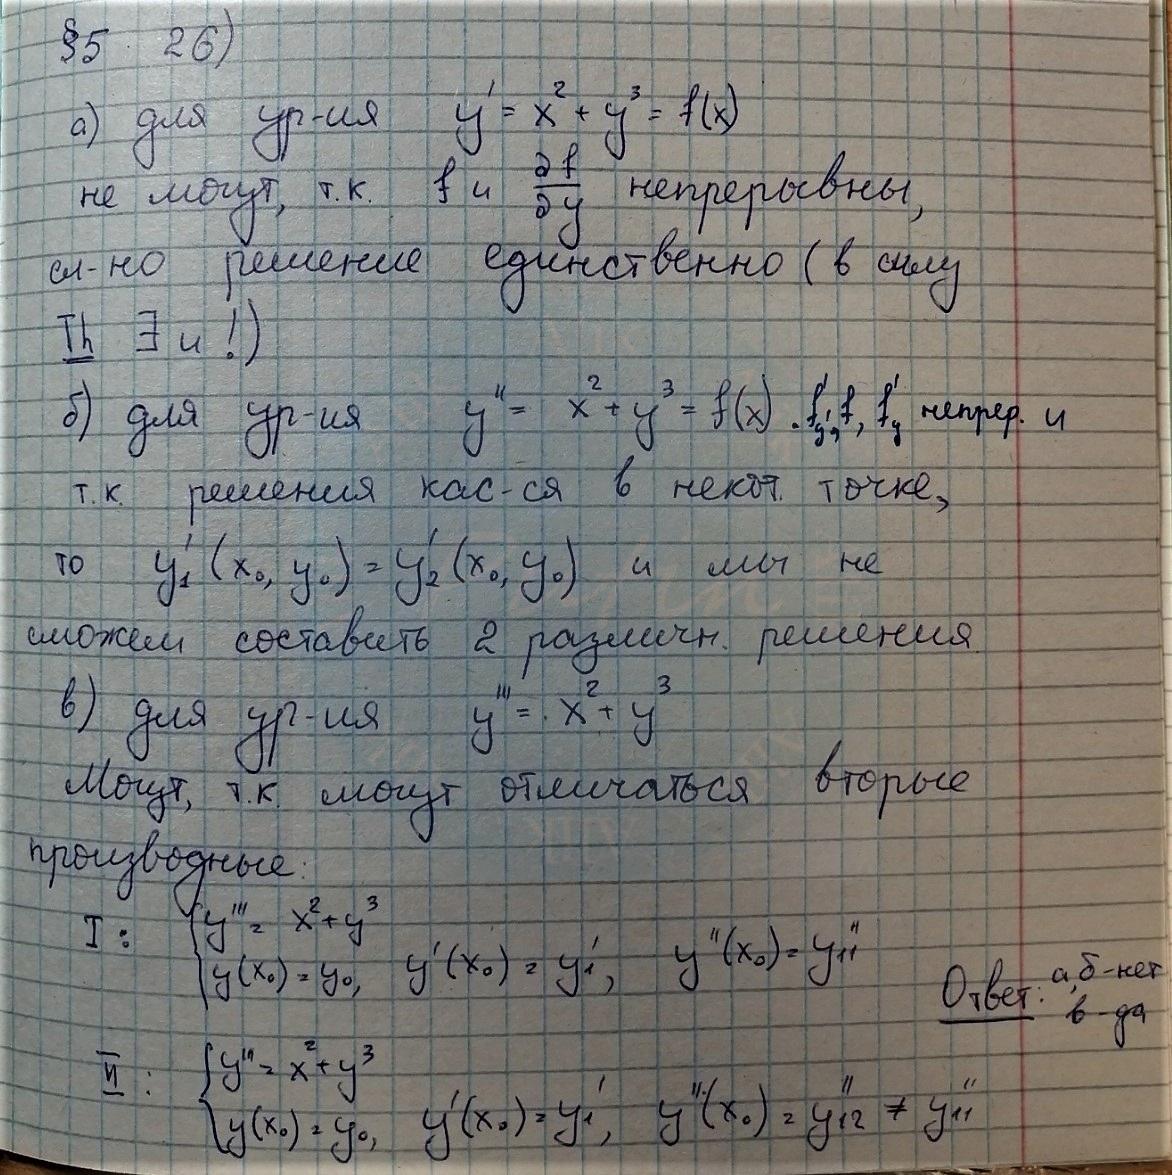 §5 26)
а) для ур-ия y' = x² + y³ = f(x)
не могут, т.к. f и ∂f/∂y непрерывны,
сл-но решение единственно (в силу
Th ∃ и !)
б) для ур-ия y'' = x² + y³ = f(x). f'y', f, f'y непрер. и
т.к. решения кас-ся в некот. точке,
то y₁'(x₀, y₀) = y₂'(x₀, y₀) и мы не
сможем составить 2 различн. решения
в) для ур-ия y''' = x² + y³
Могут, т.к. могут отличаться вторые
производные:
I: { y''' = x² + y³
y(x₀) = y₀, y'(x₀) = y₁', y''(x₀) = y₁₁''
Ответ: а,б - нет
в - да
II: { y''' = x² + y³
y(x₀) = y₀, y'(x₀) = y₁', y''(x₀) = y₁₂'' ≠ y₁₁''